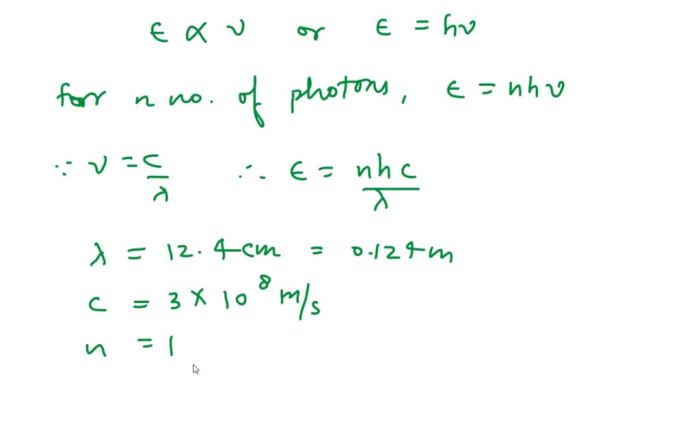 ϵ ∝ ν or ϵ = hν
for n no. of photons, ϵ = nhν
∵ ν = c/λ ∴ ϵ = nhc/λ
λ = 12.4cm = 0.124m
c = 3 × 10⁸ m/s
n = 1